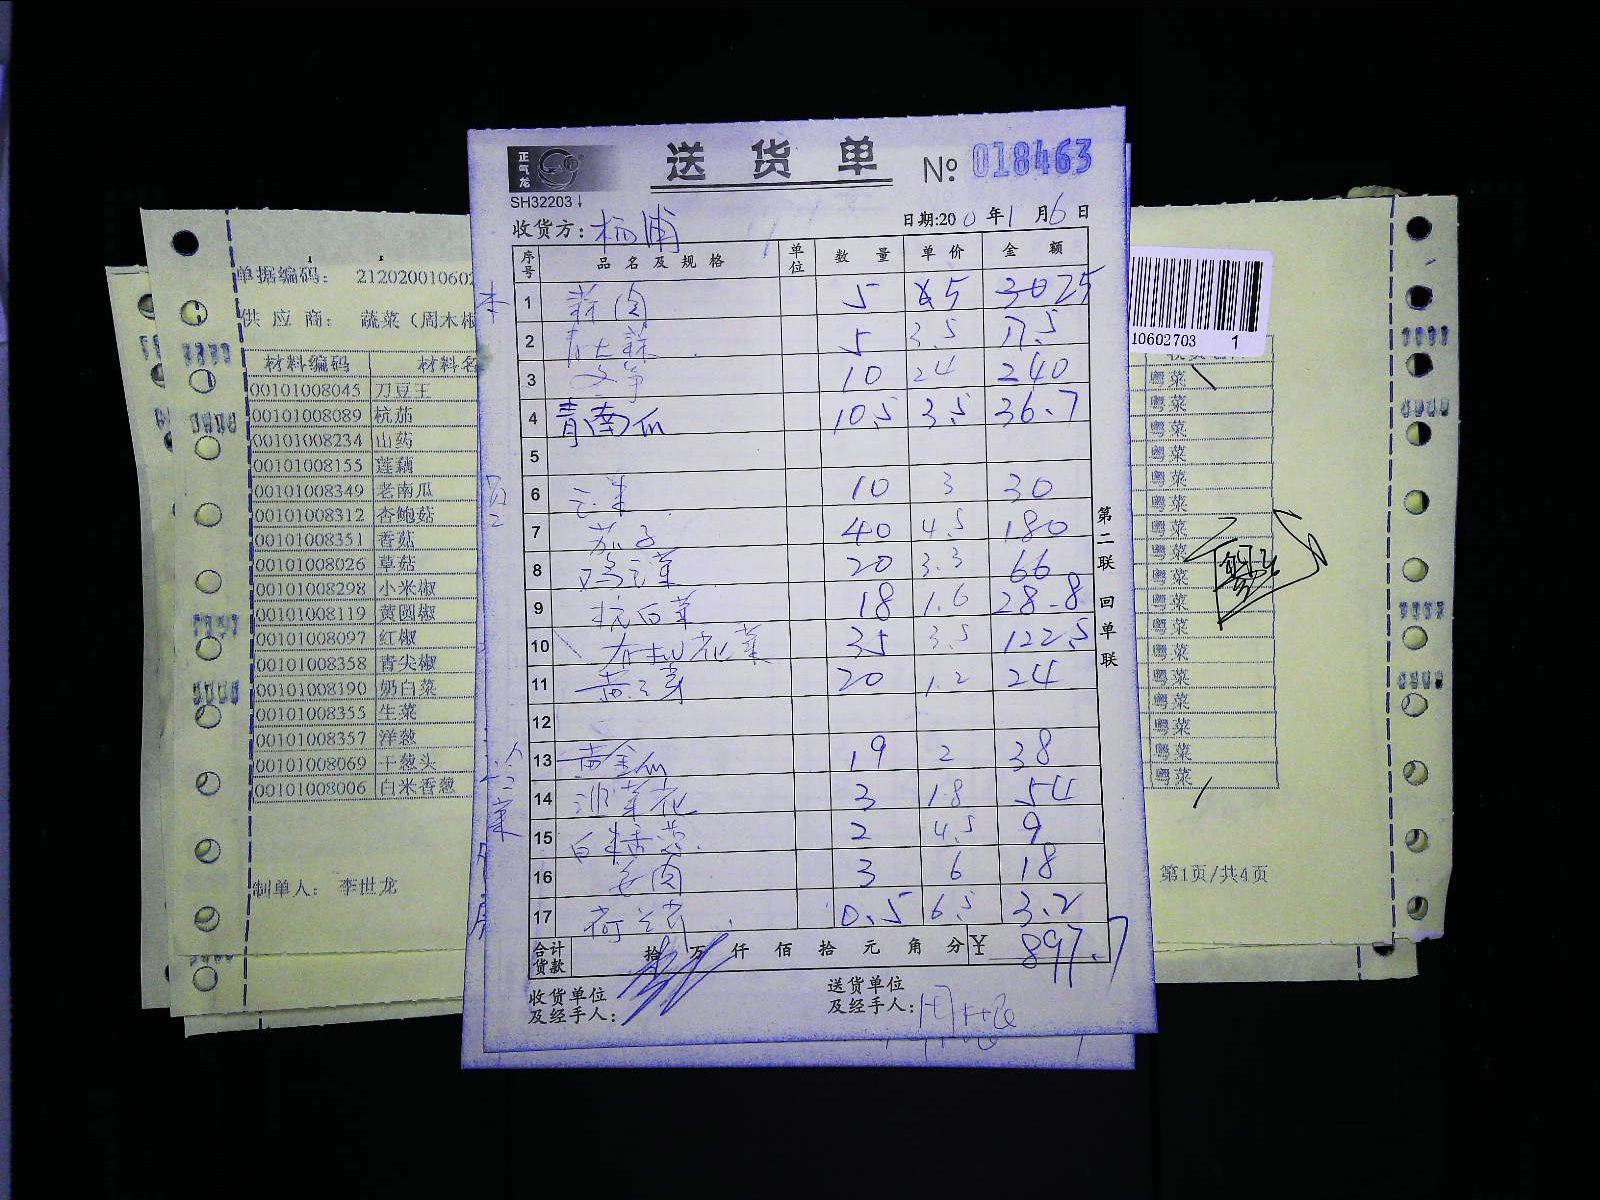 正气龙
SH32203
送货单
№ 018463
收货方:
日期:200年1月6日
序号 品名及规格 单位 数量 单价 金额
1 蒜肉 5 5 25
2 5 3.5 17.5
3 10 24 240
4 青南瓜 10.5 3.5 36.7
5
6 10 3 30
7 茄子 40 4.5 180
8 20 3.3 66
9 杭白菜 18 1.6 28.8
10 花菜 35 3.5 122.5
11 20 1.2 24
12
13 黄金瓜 19 2 38
14 油菜花 3 18 54
15 白米香葱 2 4.5 9
16 姜肉 3 6 18
17 0.5 6.5 3.2
合计货款 拾 万 仟 佰 拾 元 角 分 ¥ 897.7
收货单位及经手人:
送货单位及经手人:
第二联 回单联
单据编码: 212020010602
供应商: 蔬菜(周木根
材料编码 材料名
00101008045 刀豆王
00101008089 杭茄
00101008234 山药
00101008155 莲藕
00101008349 老南瓜
00101008312 杏鲍菇
00101008351 香菇
00101008026 草菇
00101008298 小米椒
00101008119 黄圆椒
00101008097 红椒
00101008358 青尖椒
00101008190 奶白菜
00101008355 生菜
00101008357 洋葱
00101008069 干葱头
00101008006 白米香葱
制单人: 李世龙
10602703 1
粤菜
粤菜
粤菜
粤菜
粤菜
粤菜
粤菜
粤菜
粤菜
粤菜
粤菜
粤菜
粤菜
粤菜
粤菜
粤菜
粤菜
第1页/共4页